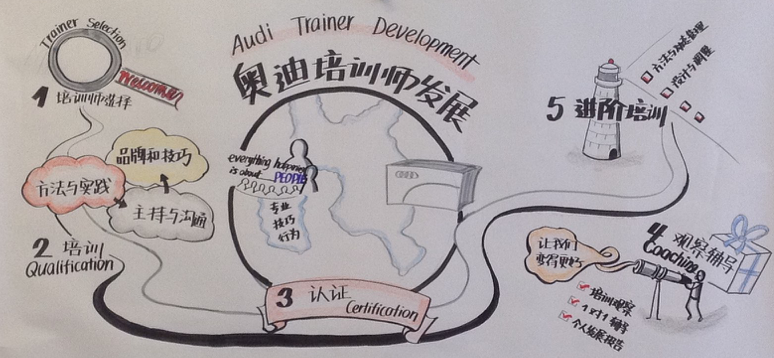 Audi Trainer Development
奥迪培训师发展
Trainer Selection
Welcome
1 培训师选择
品牌和技巧
方法与实践
主持与沟通
2 培训
Qualification
everything
is about PEOPLE
专业
技巧
行为
3 认证
Certification
4 观察辅导
Coaching
让我们
变得更好
培训观察
1对1辅导
个人发展报告
5 进阶培训
方法与
设计与